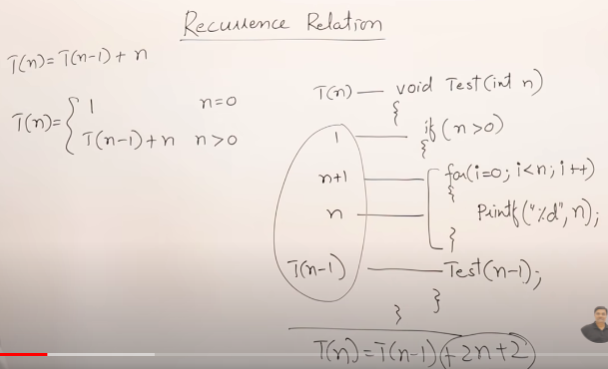 Recurrence Relation
T(n)=T(n-1)+n
T(n)={ 1 n=0
T(n-1)+n n>0
T(n) — void Test(int n)
{
1 — if(n>0)
{
n+1 — for(i=0; i<n; i++)
{
n — Printf("%d", n);
}
T(n-1) — Test(n-1);
}
}
T(n)=T(n-1)+2n+2